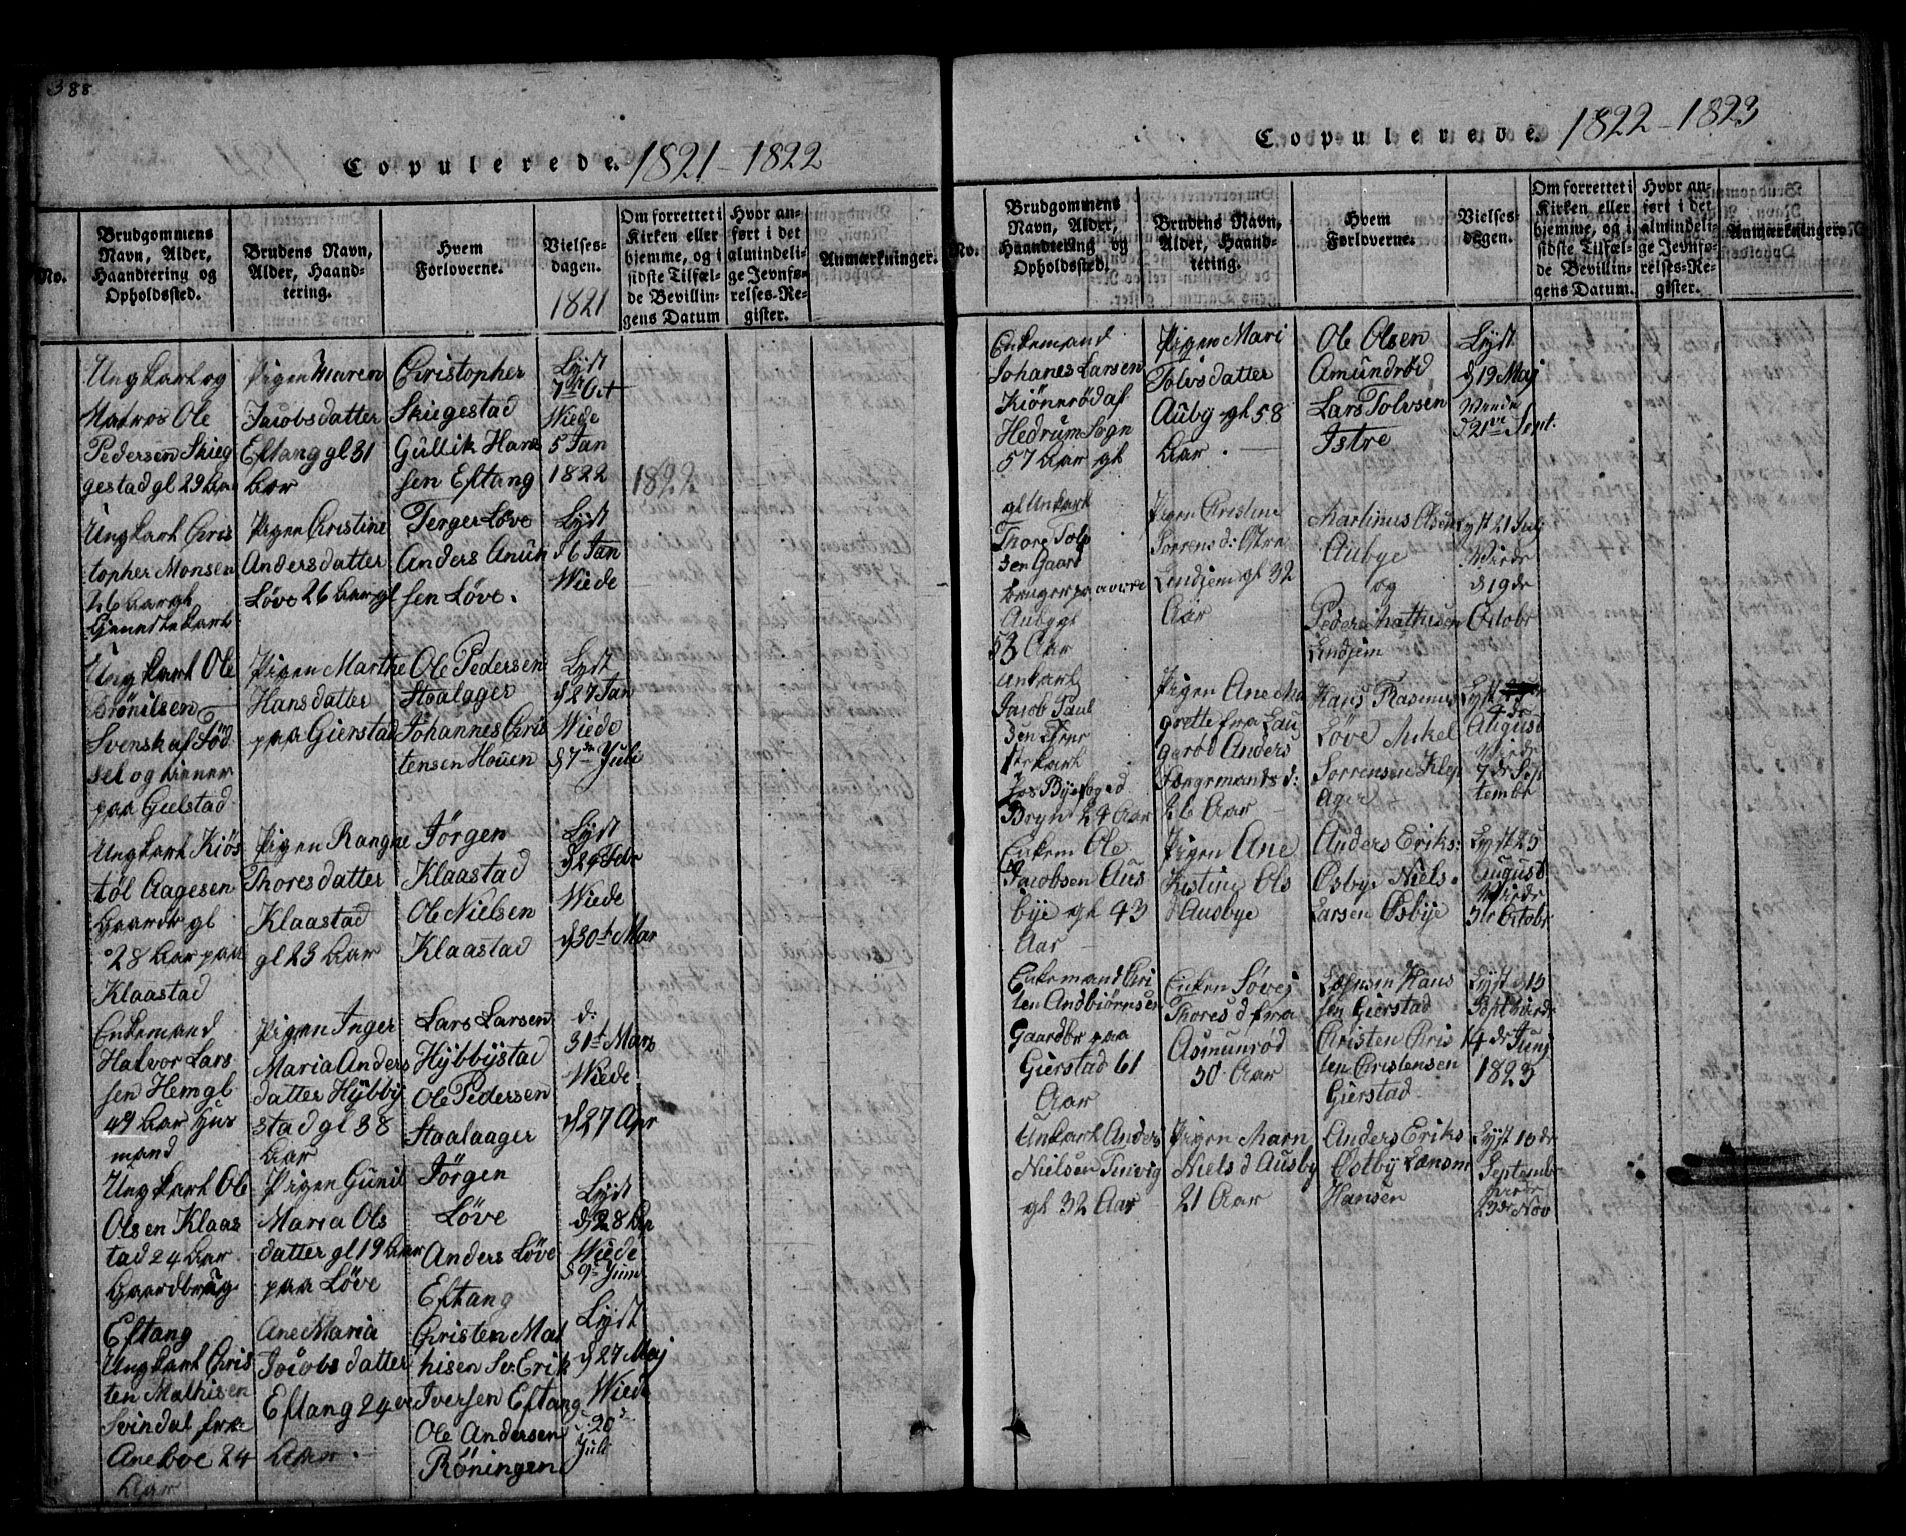 388
Copulerede. 1821-1822
No.
Brudgommens
Navn, Alder,
Haandtering og
Opholdssted.
Brudens Navn,
Alder, Haand-
tering.
Hvem
Forloverne.
Vielses-
dagen.
1821
Om forrettet i
Kirken eller
hjemme, og i
sidste Tilfæl-
de Bevillin-
gens Datum
Hvor an-
ført i det
almindeli-
ge Jevnfø-
relses-Re-
gister.
Anmærkninger.
Ungkarl og
Matros Ole
Pedersen Skieg
gestad gl 29 Aar
Pigen Maren
Jacobsdatter
Eftang gl 31
Aar
Christopher
Skiegestad
Gullik Hans
sen Eftang
Lyst
7de Oct
Wiede
5 Jan
1822
1822
Ungkarl Chris
topher Monsen
26 Aar gl
Pigen Christine
Andersdatter
Løve 26 Aar gl
Terger Løve
Anders Anun
sen Løve.
Lyst
d 6 Jan
Wiede
Ungkarl Ole
Svensk af Fød
sel og tiener
paa Gielstad
Pigen Marthe
Hansdatter
paa Gierstad
Ole Pedersen
Staalager
Johannes Chris
tensen Houen
Lyst
d 27 Jan
Wiede
d 7de Juli
Ungkarl Kiøs
tøl Aagesen
Gaardb gl
28 Aar paa
Klaastad
Pigen Rangne
Thoresdatter
Klaastad
gl 23 Aar
Jørgen
Klaastad
Ole Nielsen
Klaastad
Lyst
d 24 Febr
Wiede
d 30te Mar
Enkemand
Halvor Lars
sen Hem gl
49 Aar Hus
mand
Pigen Inger
Maria Anders
datter Hybby
stad gl 38
Aar
Lars Larsen
Hybbystad
Ole Pedersen
Staalaager
d:
31te Mars
Wiede
d 27 Apr
Ungkarl Ole
Olsen Klaas
tad 24 Aar
Gaardbrug
Eftang
Pigen Gunil
Maria Ols
datter gl 19 Aar
paa Løve
Jørgen
Løve
Anders Løve
Eftang
Lyst
d 28 Apr
Wiede
d 9de Juni
Ungkarl Chris
ten Mathisen
Svindal fra
Aneboe 24
Aar
Ane Maria
Jacobsdatter
Eftang 24
Aar.
Christen Mat
hisen Sv. Erik
Iversen Eftang
Ole Andersen
Røningen
Lyst
d 27 Maj
Wiede
20
Juli
Copulerede. 1822-1823
No.
Brudgommens
Navn, Alder,
Haandtering og
Opholdssted.
Brudens Navn,
Alder, Haand-
tering.
Hvem
Forloverne.
Vielses-
dagen.
Om forrettet i
Kirken eller
hjemme, og i
sidste Tilfæl-
de Bevillin-
gens Datum.
Hvor an-
ført i det
almindeli-
ge Jevnfø-
relses-Re-
gister.
Anmærkninger.
Enkemand
Johanes Larsen
Kiønnerød af
Hedrum Sogn
57 Aar gl
Pigen Mari
Tolvsdatter
Auby gl 58
Aar.
Ole Olsen
Amundrød
Lars Tolvsen
Istre
Lyst
d 19 Maj
Wiede
d 21de Sept.
gl Unkarl
Thore Tols
sen Gaard
bruger paa øvre
Auby gl
53 Aar
Pigen Christine
Sørensd: Østre
Lindjem gl 32
Aar
Martinus Olsen
Aubye
og
Peder Mathisen
Lindjem
Lyst 21 Julj
Wiede
d 19de
Octobr
Unkarl
Jacob Paul
sen
hos Byefoged
Bryn 24 Aar
Pigen Ane Ma
grette fra Lau
gerød Anders
26 Aar
Hans Rasmus
Løve Mikel
Sørrensen Klep
Ager
Lyst
4de
August
Wiede
7de Sep
tembr
Enkem Ole
Jacobsen Aus
bye gl 43
Aar
Pigen Ane
Kistine Ols
d Ausbye
Anders Eriks:
Østbye Niels
Larsen Østbye
Lyst 25
August
Wiede
Octobr
Enkemand Cris
ten Andbiørnsen
Gaardbr paa
Gierstad 61
Aar
Enken Søvej
Thores d fra
Asmunrød
50 Aar
Hans
sen Gierstad
Kristen Cris
ten Christensen
Gierstad
Lyst d 15
Sept
14de Junj
1823
Unkarl Anders
Nielsen
gl 32 Aar
Pigen Marn
Niels d Ausby
21 Aar
Anders Eriks
Østby Lænsm
Hansen
Lyst 10de
Septembr
23de Nov